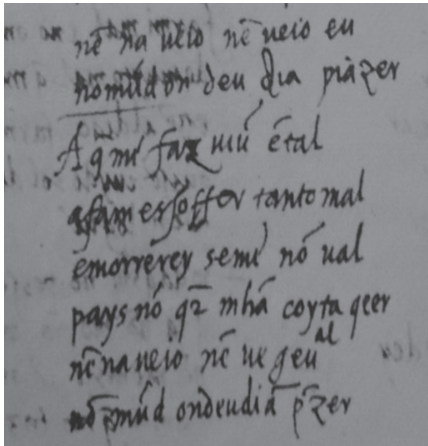 nẽ na ueio nẽ ueio eu
nomũd on deu dia prazer
A q̄ mi faz uiũ ẽ tal
afam e soffer tanto mal
emorrerey semi nõ ual
pays nõ q̄r mhã coyta qeer
nẽ na ueio nẽ ue geu al
nõ mũd ondeu diã p̃zer